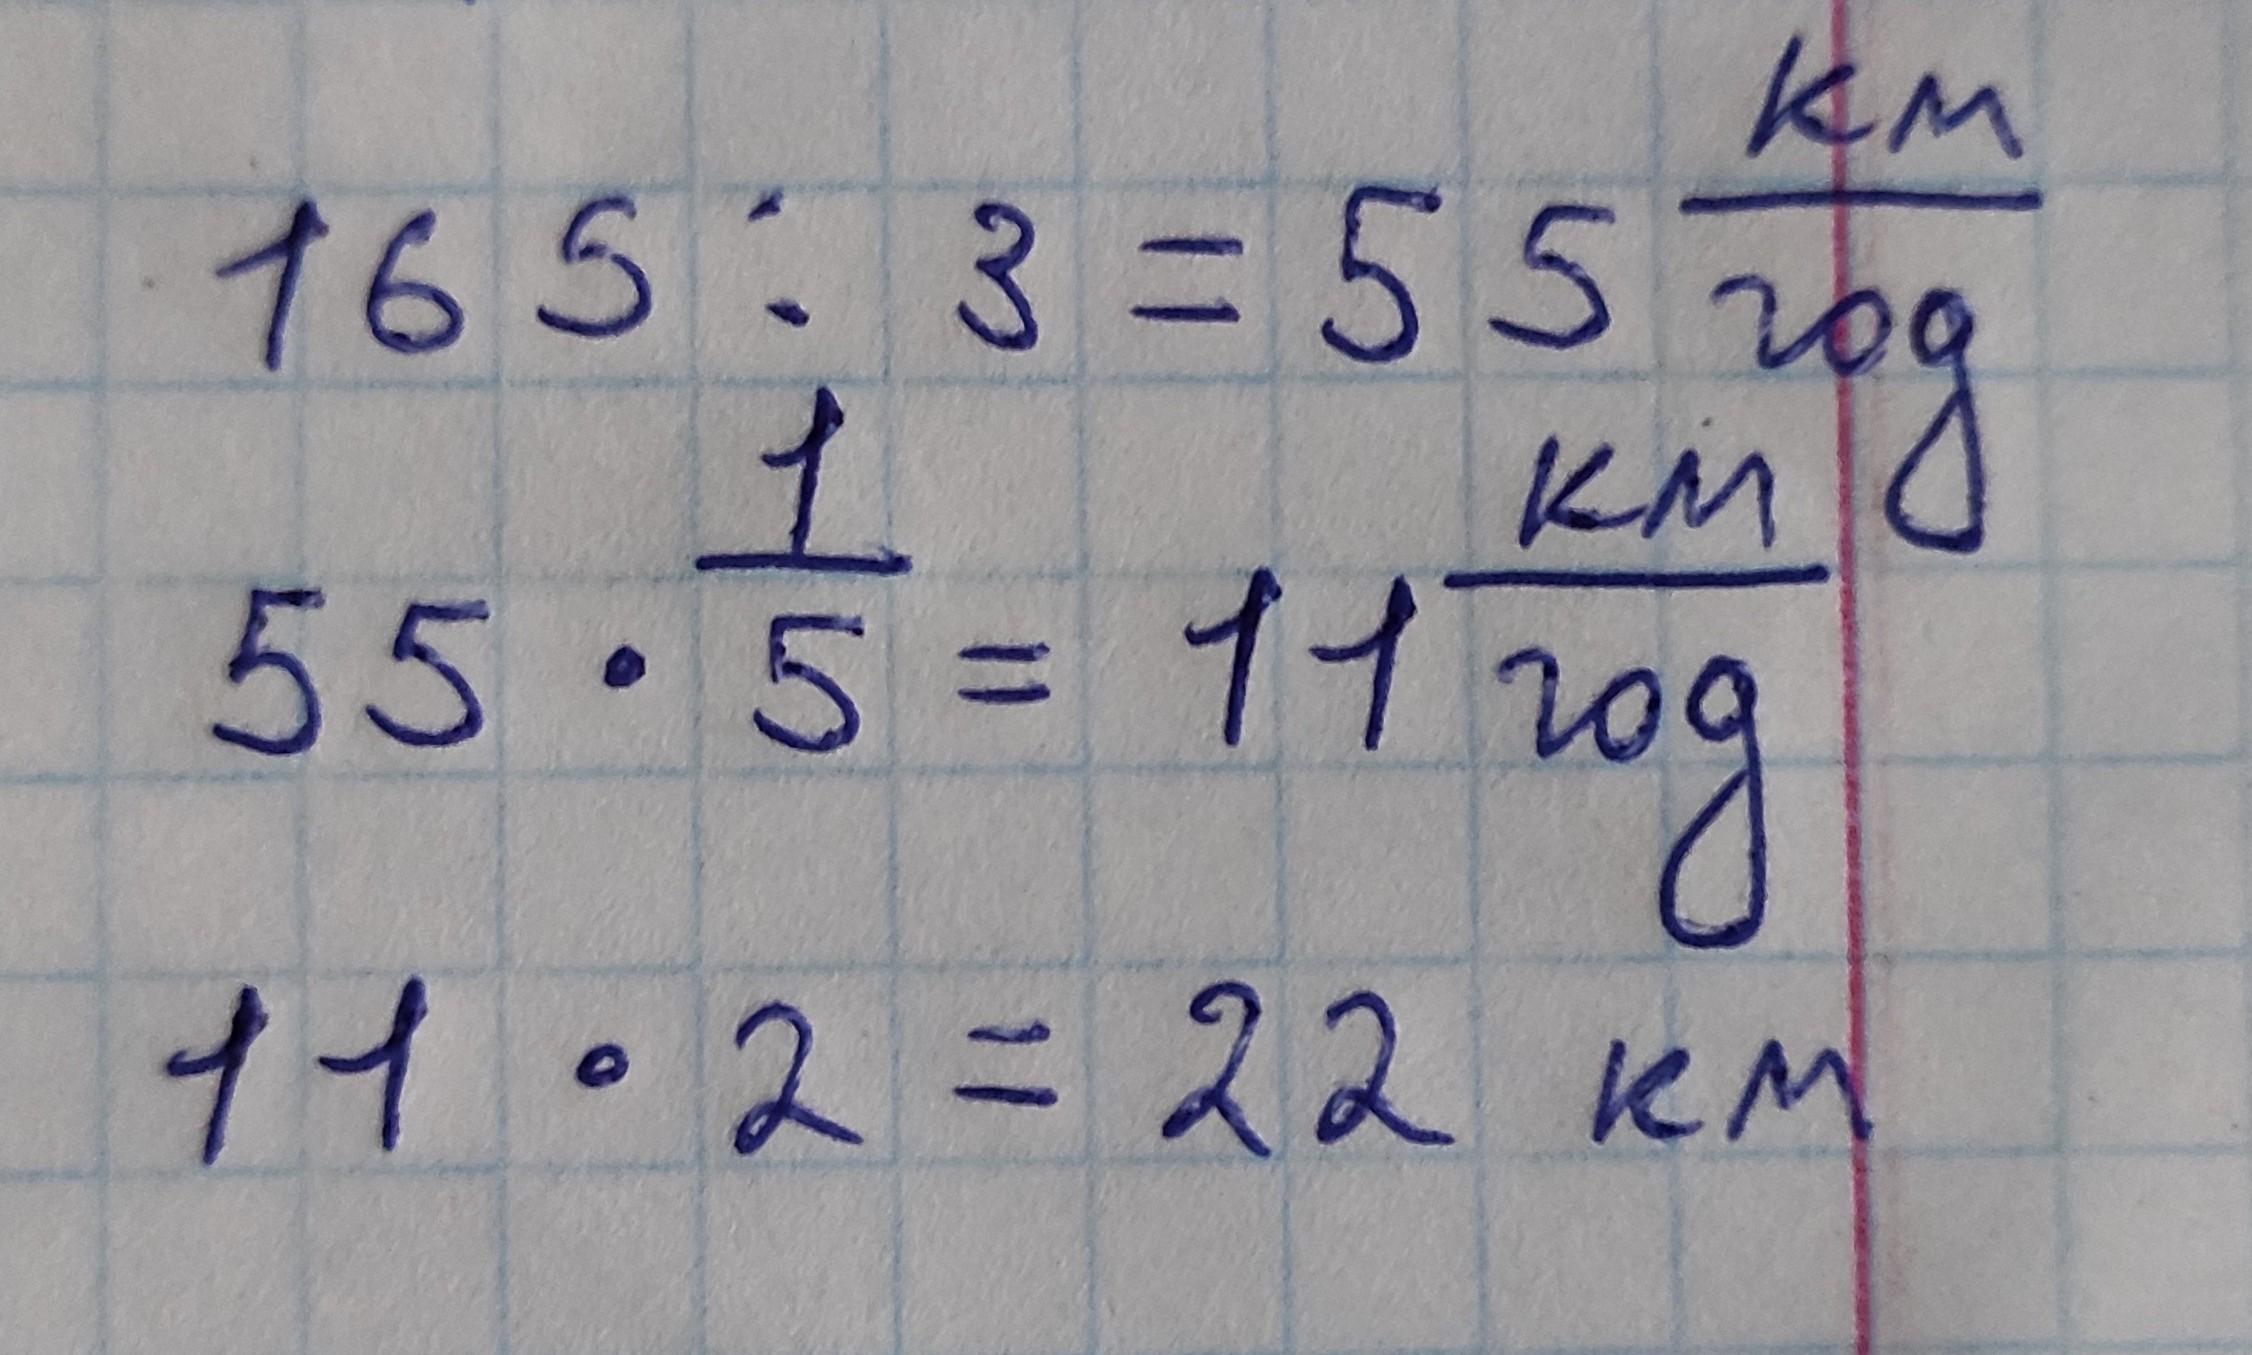 165 : 3 = 55 км/год
55 · 1/5 = 11 км/год
11 · 2 = 22 км